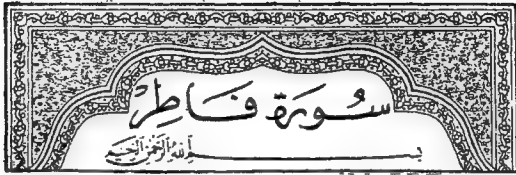 سُورَة فَاطِرْ
بسم الله الرحمن الرحيم